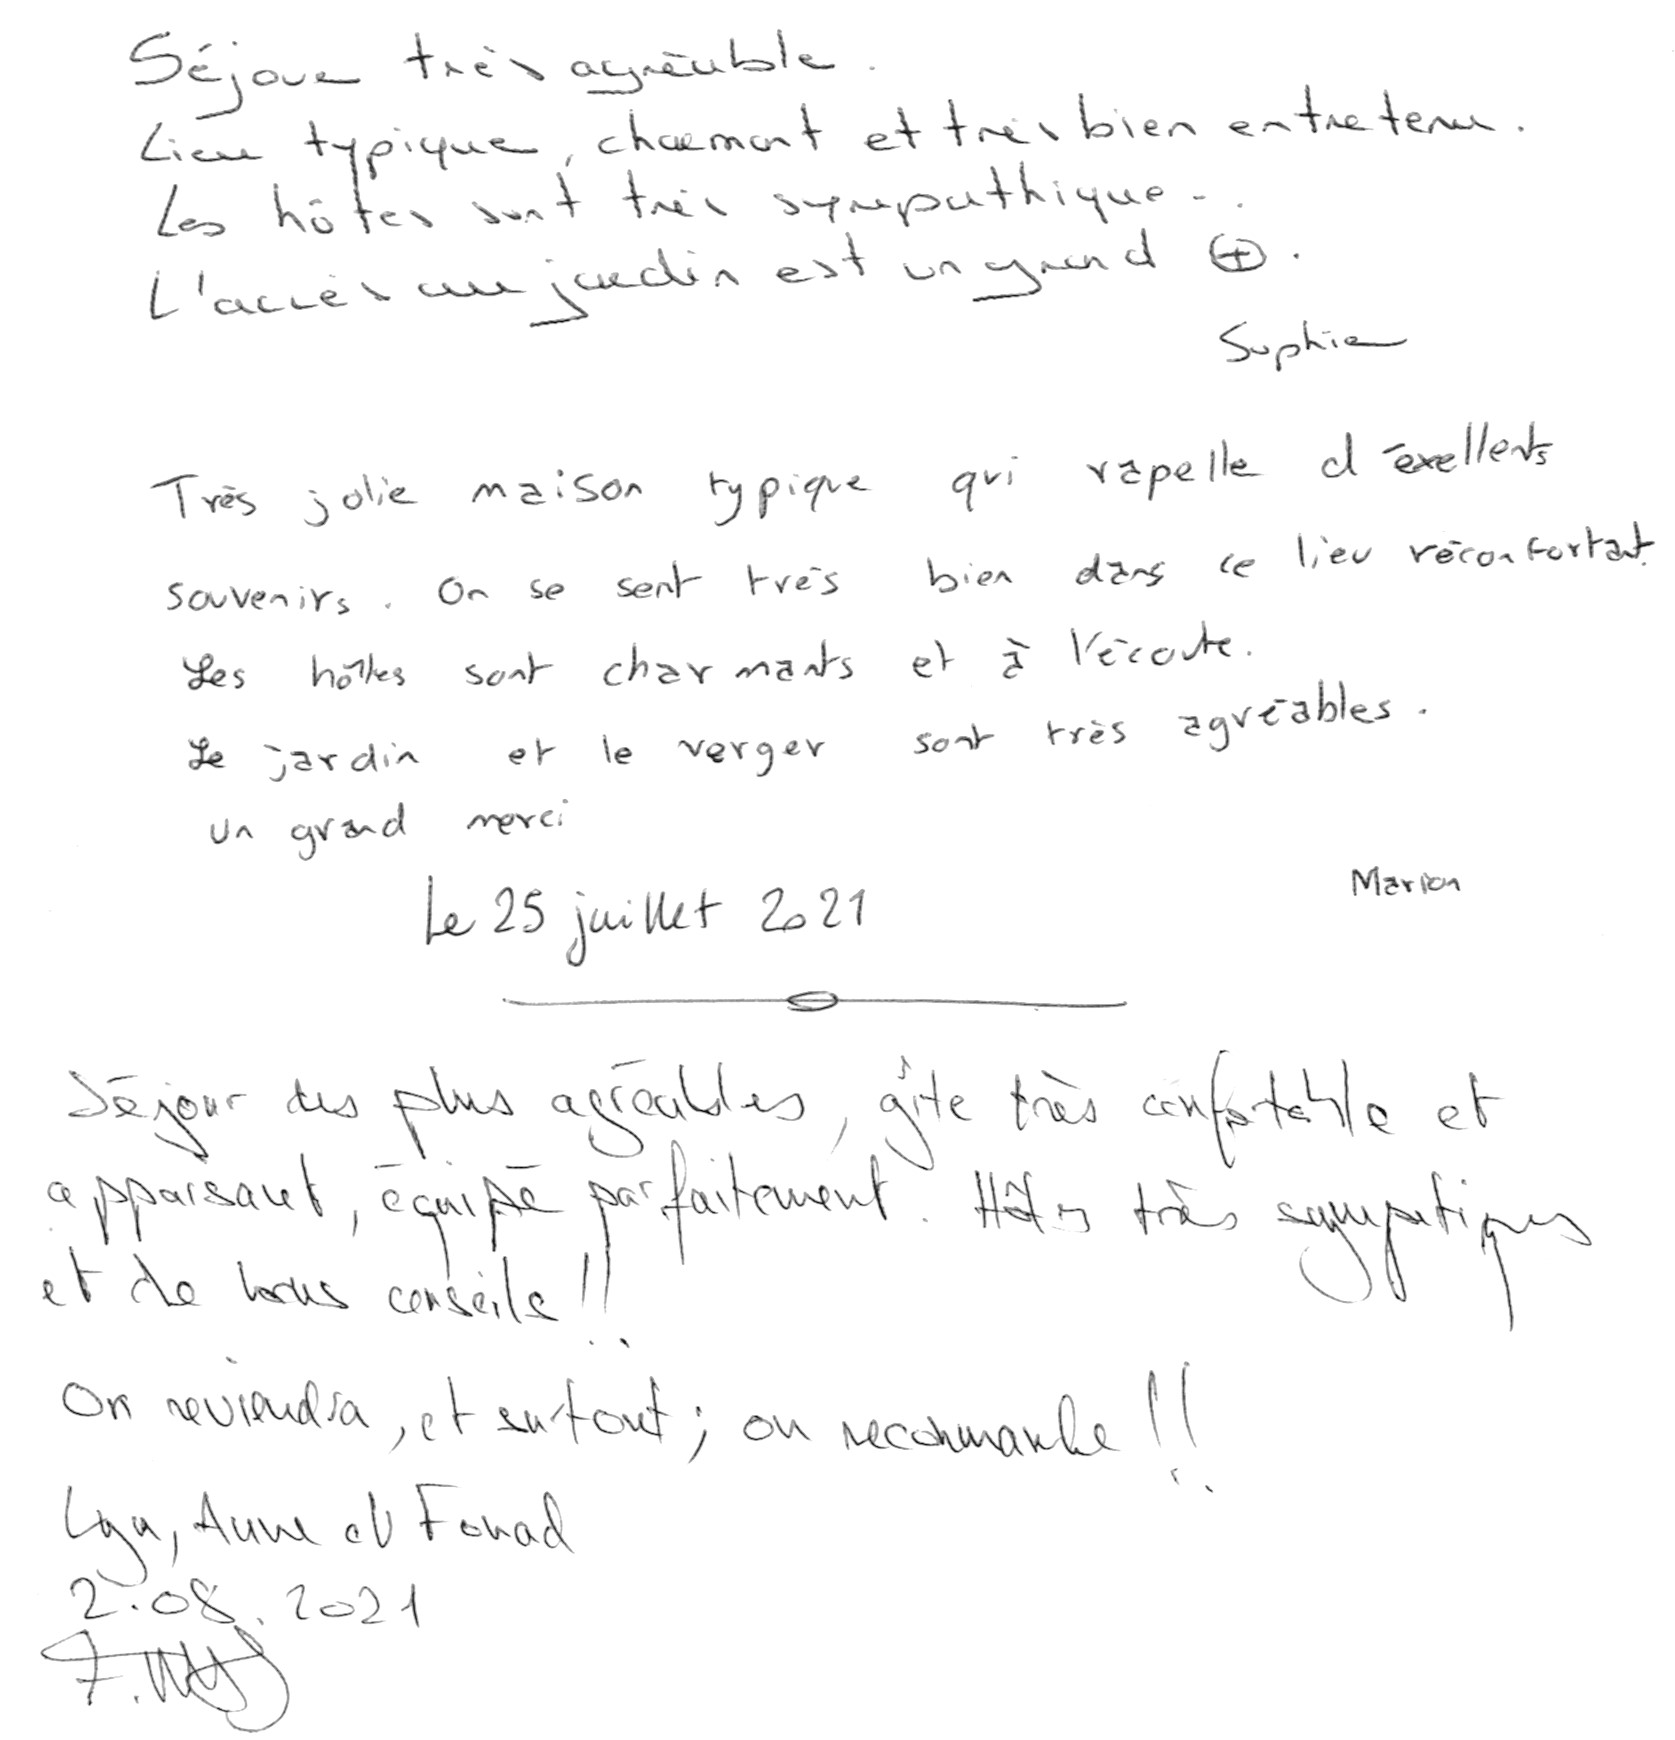 Séjour très agréable.
Lieu typique, charmant et très bien entretenu.
Les hôtes sont très sympathique...
L'accès au jardin est un grand ⊕.
Sophie
Très jolie maison typique qui rapelle d'éxellents
souvenirs. On se sent très bien dans ce lieu réconfortant.
Les hôtes sont charmants et à l'écoute.
Le jardin et le verger sont très agréables.
un grand merci
Marion
Le 25 juillet 2021
Séjour des plus agréables, gîte très confortable et
appaisant, équipé parfaitement. Hôtes très sympatiques
et de bons conseils !!
On reviendra, et surtout; on recommande !!
Anne et Fouad
2.08.2021